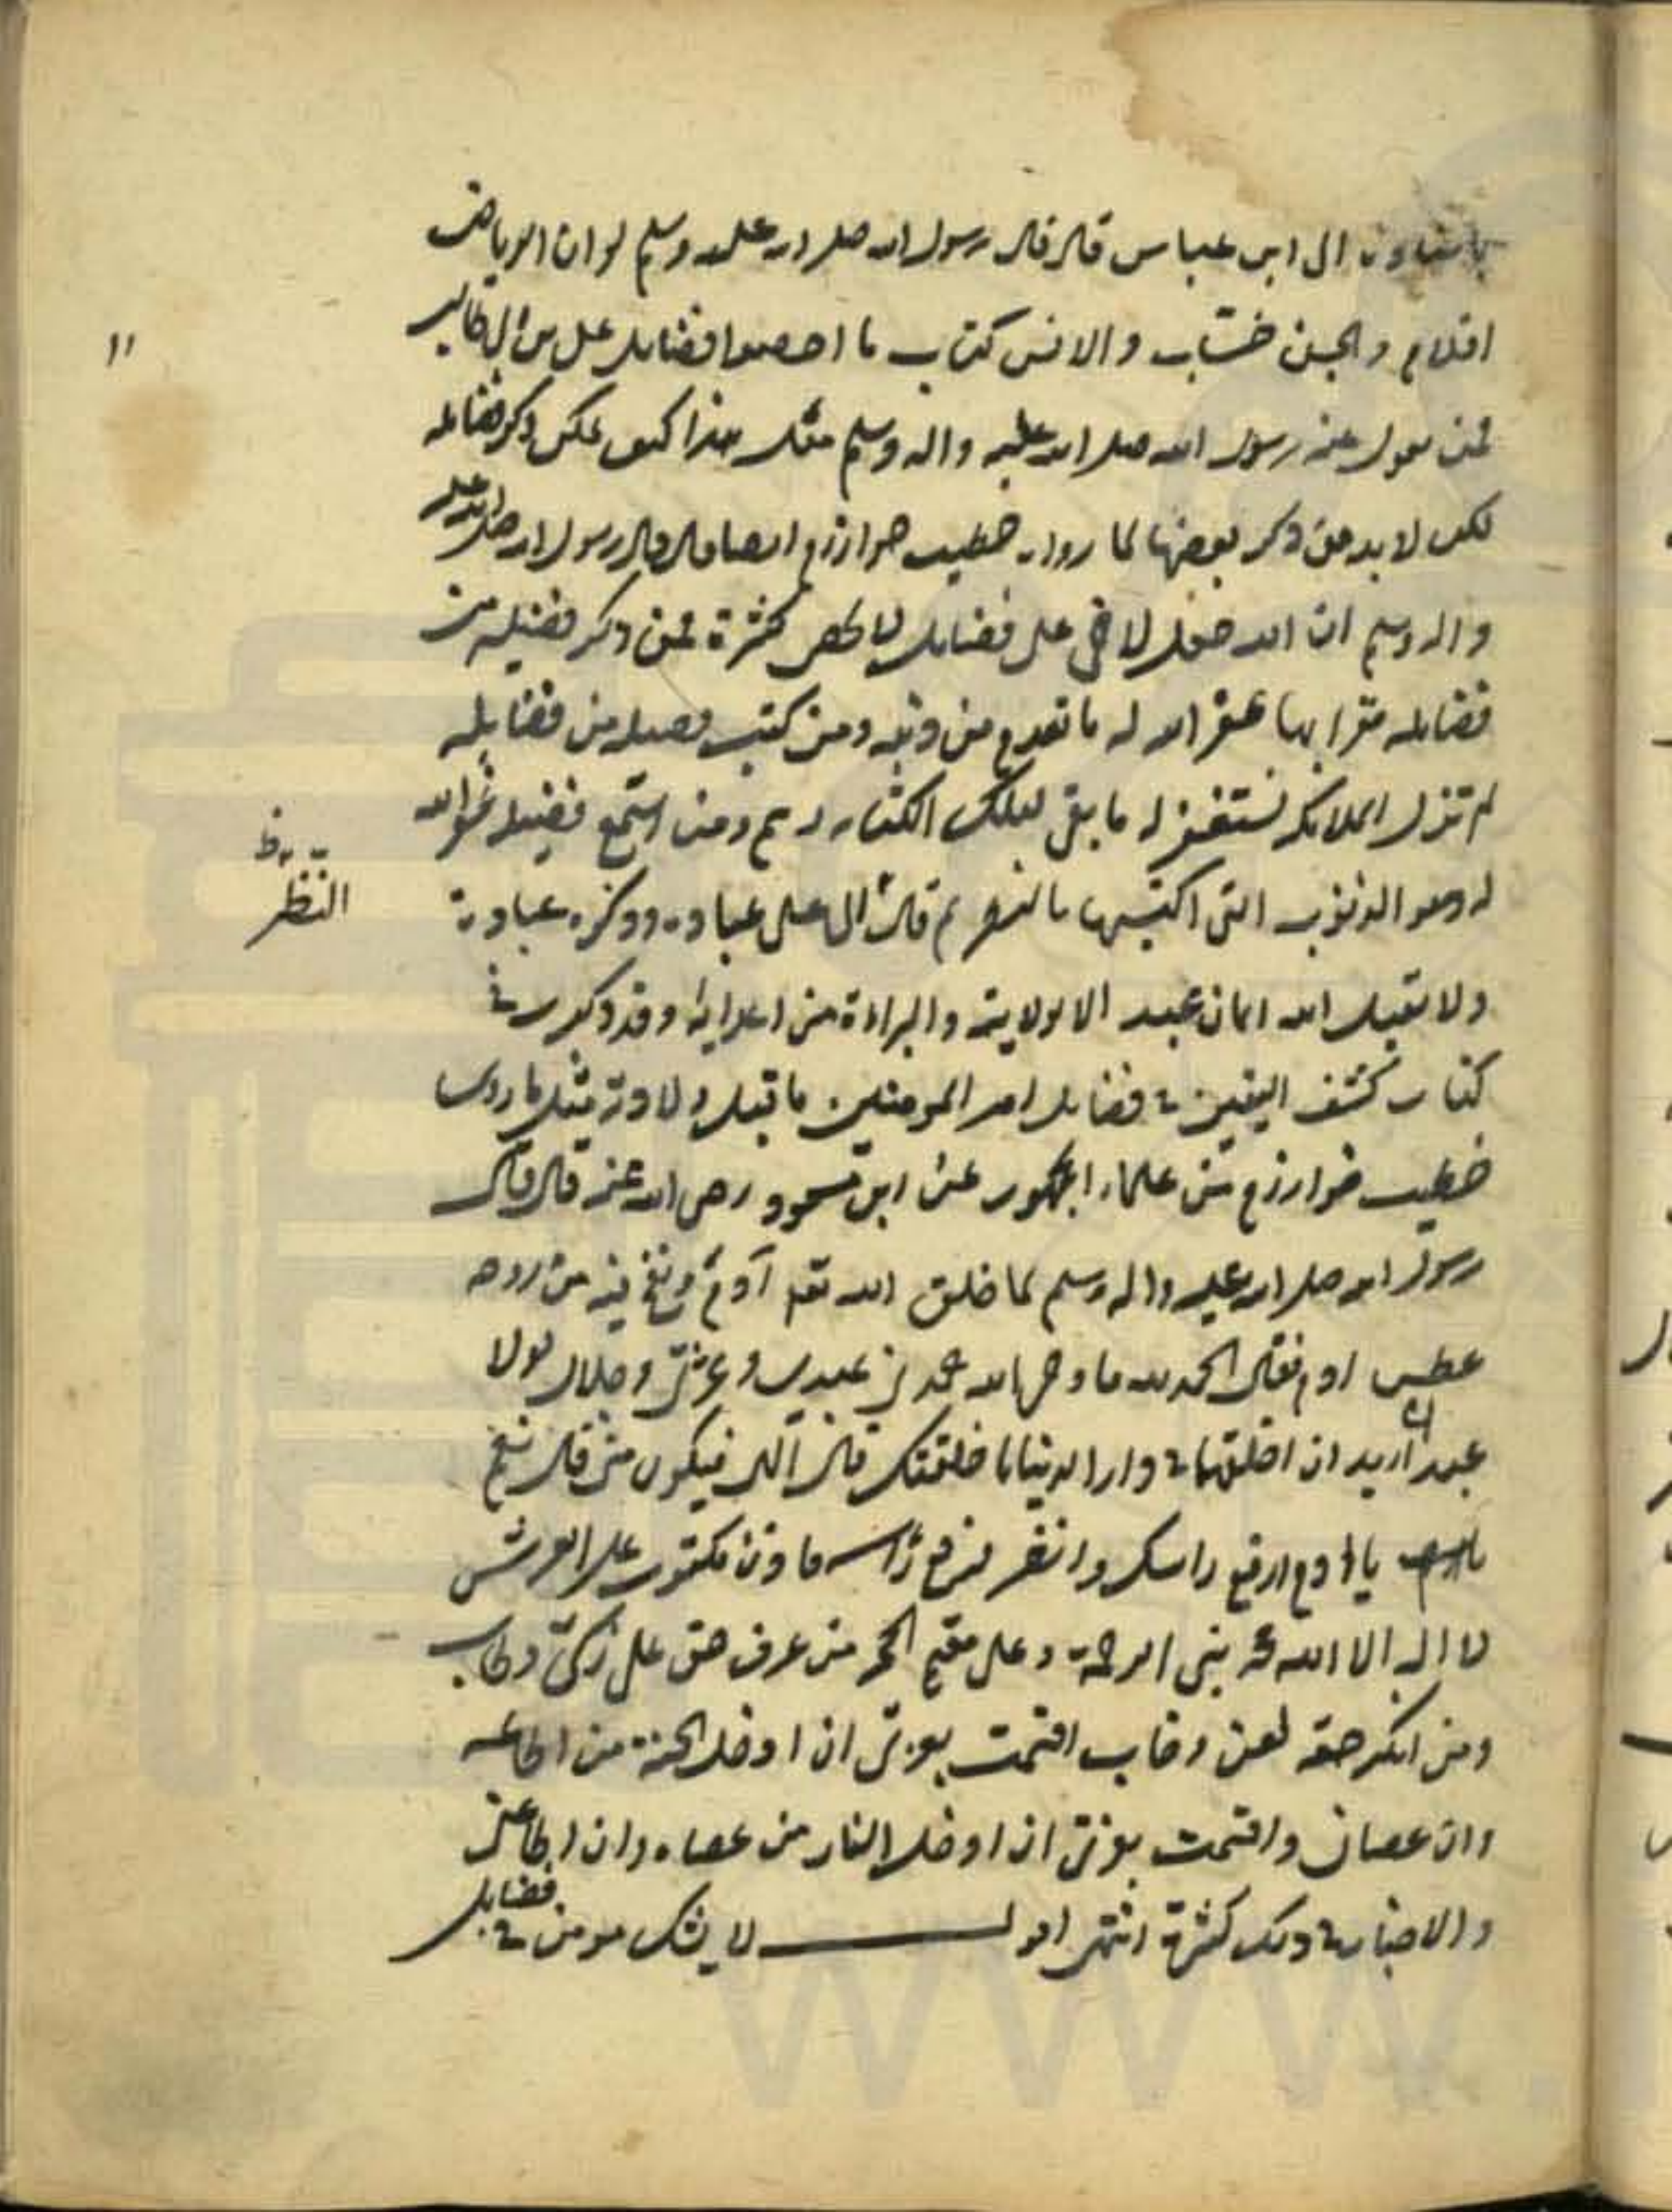 باسناده الى ابن عباس قال قال رسول الله صلى الله عليه وسلم لو ان الرياض
اقلام والجن حسّاب والانس كتاب ما احصوا فضايل على بن ابى طالب
فمن يقول عنه رسول الله صلى الله عليه واله وسلم مثل هذا كيف يمكن ذكر فضايله
لكن لا بد من ذكر بعضها لما رواه خطيب خوارزم ايضا قال قال رسول الله صلى الله عليه
واله وسلم ان الله جعل لاخى على فضايل لا تحصى كثرة فمن ذكر فضيلة من
فضايله مقرا بها غفر الله له ما تقدم من ذنبه ومن كتب فضيلة من فضايله
لم تزل الملائكة تستغفر له ما بقى لتلك الكتابة رسم ومن استمع فضيلة غفر الله
له الذنوب التى اكتسبها بالنظر ثم قال الى على عبادة وذكره عبادة
النظر
ظ
ولا يقبل الله ايمان عبد الا بولايته والبراءة من اعدايه وقد ذكرت فى
كتاب كشف اليقين فى فضايل امير المومنين ما قبل ولادته مثل ما روى
خطيب خوارزم من علماء الجمهور عن ابن مسعود رضى الله عنه قال قال
رسول الله صلى الله عليه واله وسلم لما خلق الله تعه آدم ونفخ فيه من روحه
عطس ادم فقال الحمد لله فاوحى الله حمدنى عبدى وعزتى وجلالى لولا
عبدان اريد ان اخلقهما فى دار الدنيا ما خلقتك قال الهى فيكون منى قال نعم
يا ادم ارفع راسك وانظر فرفع راسه فاذن مكتوب على العرش
لا اله الا الله محمد نبى الرحمة وعلى مقيم الحجة من عرف حق على زكى وطاب
ومن انكر حقه لعن وخاب اقسمت بعزتى ان ادخل الجنة من اطاعه
وان عصانى واقسمت بعزتى ان ادخل النار من عصاه وان اطاعنى
والاخبار فى ذلك كثيرة انتهى اقول لا يشك مومن فى فضايل
۱۱